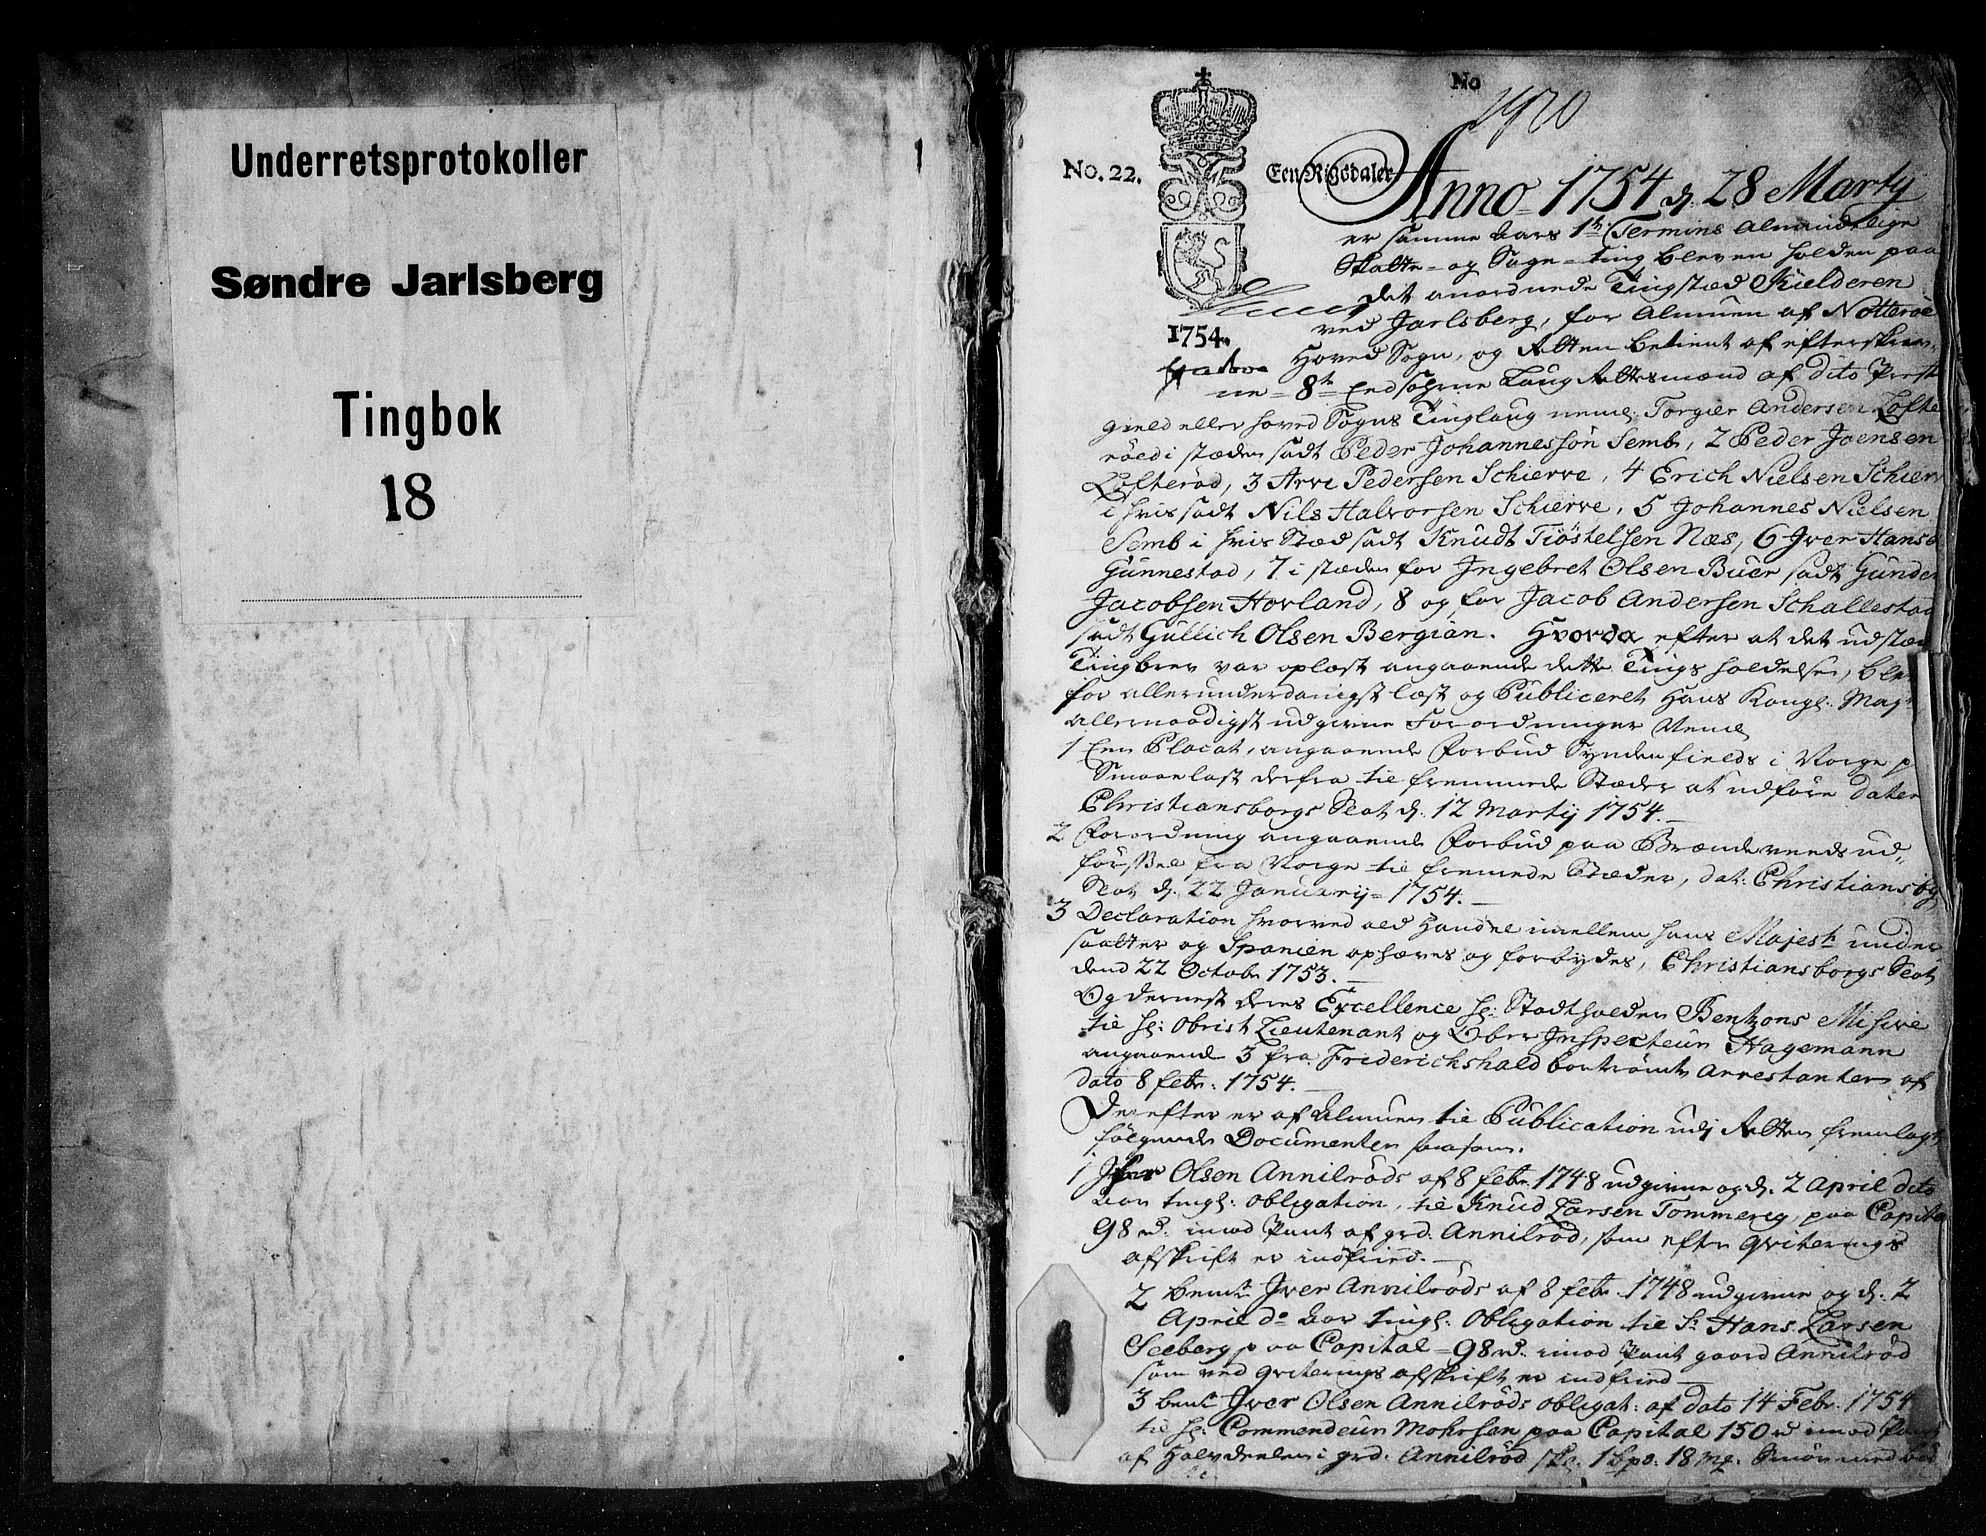 Underretsprotokoller
Søndre Jarlsberg
Tingbok
18
1
No
No. 22.
Een Rigsdaler
1754.
Anno 1754 d. 28 Martij
er samme Aars 1te Termins Almindelige
Skatte- og Sage-Ting bleven holden paa
det anordnede Tingstæd Kielderen
ved Jarlsberg, for Almuen af Nøtterøe
Hoved Sogn, og Retten betient af efterskrev,,
ne 8te Eedsorne Laug Rettesmænd af dito Præste
gield eller Hoved Sogns Tinglaug neml: Torgier Andersen Løfte
röed i stæden sadt Peder Johannessön Semb, 2 Peder Joensen
Löfteröd, 3 Arve Pedersen Schierve, 4 Erich Nielsen Schierv
i hvis sadt Nils Halvorsen Schierve, 5 Johannes Nielsen
Semb i hvis Stæd sadt Knudt Tiöstelsen Næs, 6 Jver Hans
Günnestad, 7 i stæden for Jngebret Olsen Buer sadt Gunder
Jacobsen Hovland, 8 og for Jacob Andersen Schallestad
sadt Gullich Olsen Bergian. Hvorda efter at det udstæd
Tingbrev var oplæst angaaende dette Tings holdelse, ble
for allerunderdanigst læst og Publiceret Hans Kongl. Mayt
allernaadigst udgivne Forordninger Neml
1 Een Placat, angaaende Forbud Syndenfields i Norge p
Smaaelast derfra til fremmede Stæder at udføre dater
Christiansborgs Slot d. 12 Martij 1754.
2 Forordning angaaende Forbud paa Brændeveeds ud,,
førsel fra Norge til fremmede Stæder, dat: Christiansbg
Slot d. 22 Januarij 1754.
3 Declaration hvorved ald Handel imellem hans Majest: under
saatter og Spanien ophæves og forbydes, Christiansborgs Slot
dend 22 Octobr 1753.
Og dernest deres Excellence Hr: Stadtholder Bentzons Misive
til Hr: Obrist Lieutenant og Ober Jnspecteur Hagemann
angaaende 3 fra Friderichshald bortrömte Arrestanter af
dato 8 febr. 1754.
Derefter er af Almuen til Publication udj Retten fremlagt
følgende Documenter saasom.
1 Jver Olsen Annilröds af 8 febr. 1748 udgivne og d. 2 April dito
Aar tingl: Obligation, til Knud Larsen Tommereg, paa Capital
98 rd. imod Pant af grd. Annilröd, som efter Qviterings
afskrift er indfried.
2 bemt Jver Annilröds af 8 febr. 1748 udgivne og d. 2
April do Aar tingl: Obligation til Sr Hans Larsen
Seeberg paa Capital 98 rd. imod Pant gaard Annilröd
som ved Qviterings afskrift er indfried
3 bemt Jver Olsen Annilröds Obligat: af dato 14 Febr. 1754
til Hr: Commendeur Mohrsen paa Capital 150 rd imod Pant
af Halvdeelen i grd. Annilröd skl. 1 bpd. 18 mk. Smør med bø